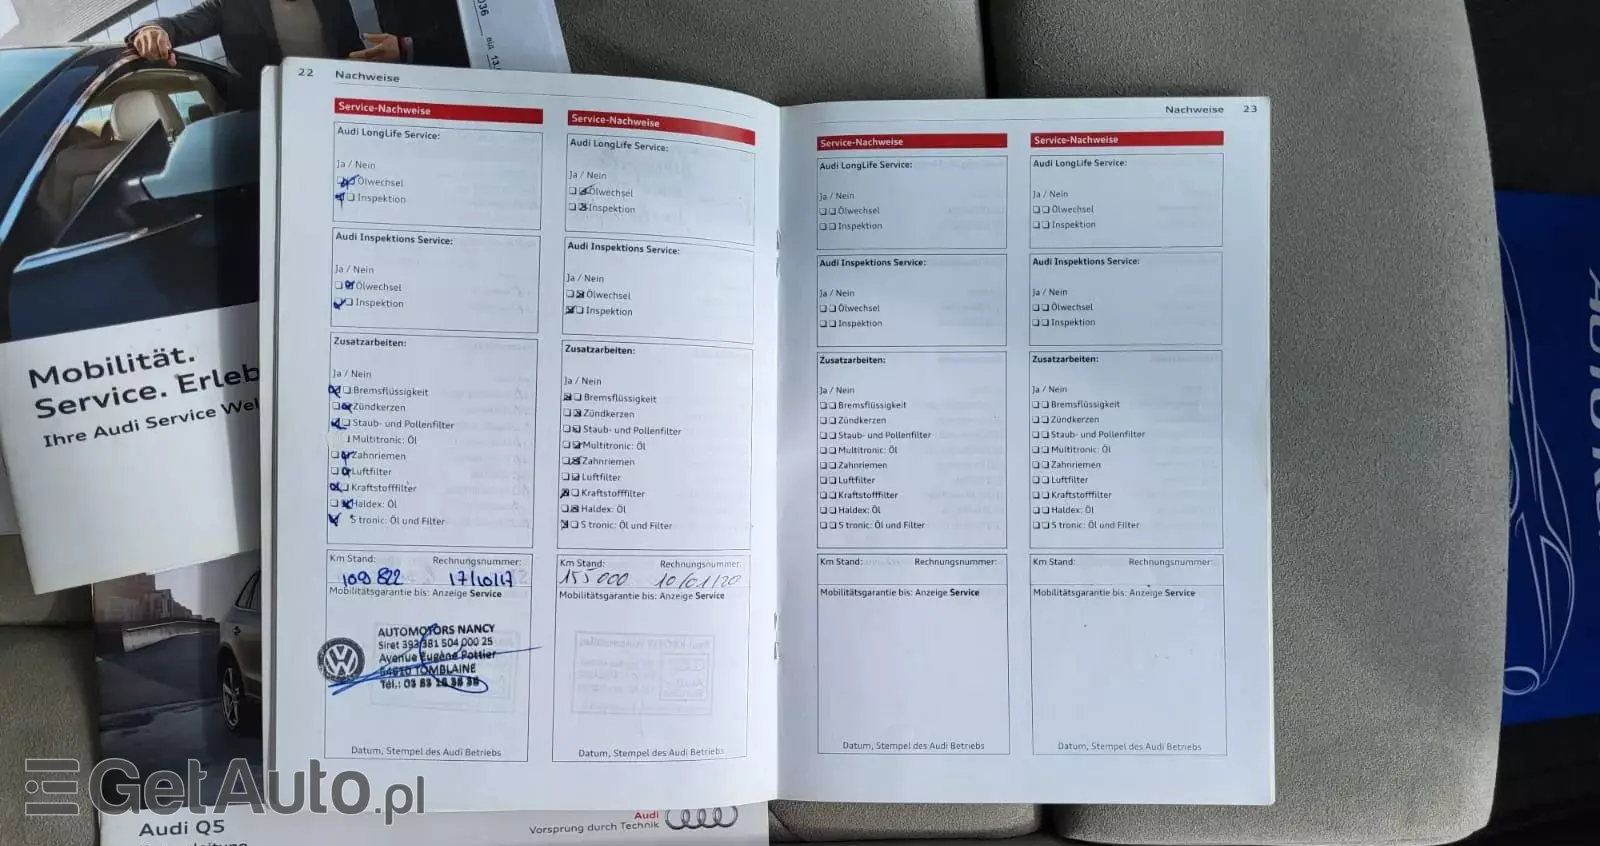 036
bis 13.
22 Nachweise
Service-Nachweise
Audi LongLife Service:
Ja / Nein
Ölwechsel
Inspektion
Audi Inspektions Service:
Ja / Nein
Ölwechsel
Inspektion
Zusatzarbeiten:
Ja / Nein
Bremsflüssigkeit
Zündkerzen
Staub- und Pollenfilter
Multitronic: Öl
Zahnriemen
Luftfilter
Kraftstofffilter
Haldex: Öl
S tronic: Öl und Filter
Km Stand: Rechnungsnummer:
109 822 17/10/17
Mobilitätsgarantie bis: Anzeige Service
AUTOMOTORS NANCY
Siret 393 381 504 000 25
Avenue Eugène Pottier
54510 TOMBLAINE
Tél.: 03 83 18 38 38
Datum, Stempel des Audi Betriebs
Service-Nachweise
Audi LongLife Service:
Ja / Nein
Ölwechsel
Inspektion
Audi Inspektions Service:
Ja / Nein
Ölwechsel
Inspektion
Zusatzarbeiten:
Ja / Nein
Bremsflüssigkeit
Zündkerzen
Staub- und Pollenfilter
Multitronic: Öl
Zahnriemen
Luftfilter
Kraftstofffilter
Haldex: Öl
S tronic: Öl und Filter
Km Stand: Rechnungsnummer:
155 000 10/01/20
Mobilitätsgarantie bis: Anzeige Service
Datum, Stempel des Audi Betriebs
Nachweise 23
Service-Nachweise
Audi LongLife Service:
Ja / Nein
Ölwechsel
Inspektion
Audi Inspektions Service:
Ja / Nein
Ölwechsel
Inspektion
Zusatzarbeiten:
Ja / Nein
Bremsflüssigkeit
Zündkerzen
Staub- und Pollenfilter
Multitronic: Öl
Zahnriemen
Luftfilter
Kraftstofffilter
Haldex: Öl
S tronic: Öl und Filter
Km Stand: Rechnungsnummer:
Mobilitätsgarantie bis: Anzeige Service
Datum, Stempel des Audi Betriebs
Service-Nachweise
Audi LongLife Service:
Ja / Nein
Ölwechsel
Inspektion
Audi Inspektions Service:
Ja / Nein
Ölwechsel
Inspektion
Zusatzarbeiten:
Ja / Nein
Bremsflüssigkeit
Zündkerzen
Staub- und Pollenfilter
Multitronic: Öl
Zahnriemen
Luftfilter
Kraftstofffilter
Haldex: Öl
S tronic: Öl und Filter
Km Stand: Rechnungsnummer:
Mobilitätsgarantie bis: Anzeige Service
Datum, Stempel des Audi Betriebs
Mobilität.
Service. Erleb
Ihre Audi Service Wel
GetAuto.pl
Audi Q5
Audi
Vorsprung durch Technik